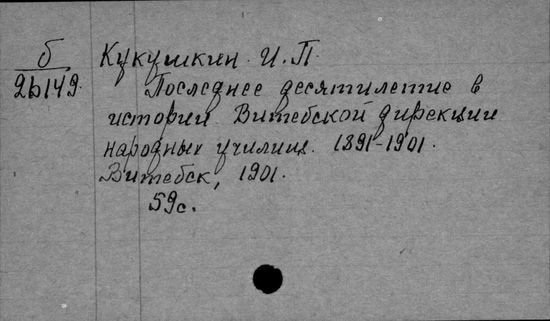 б Кукушкин И.П.
2Б149 Последнее десятилетие в
истории Витебской дирекции
народных училищ. 1891-1901.
Витебск, 1901.
59с.